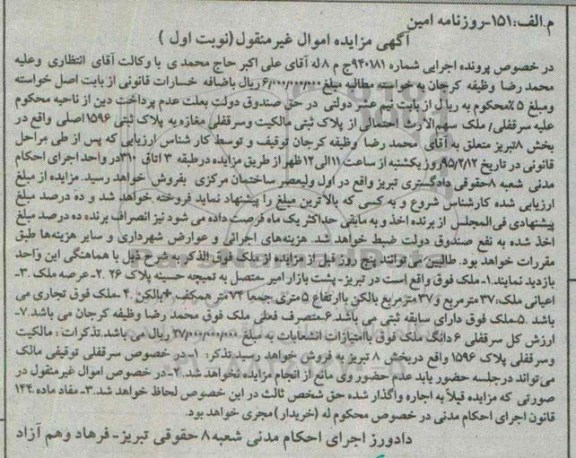 م.الف:۱۵۱-روزنامه امین
آگهی مزایده اموال غیرمنقول(نوبت اول )
در خصوص پرونده اجرایی شماره ۹۴۰۱۸۱ج م ۸له آقای علی اکبر حاج محمدی با وکالت آقای انتظاری وعلیه
محمد رضا وظیفه کرجان به خواسته مطالبه مبلغ ۶/۰۰۰/۰۰۰/۰۰۰ریال باضافه خسارات قانونی از بابت اصل خواسته
ومبلغ ۵٪محکوم به ریال از بابت نیم عشر دولتی در حق صندوق دولت بعلت عدم پرداخت دین از ناحیه محکوم
علیه سرقفلی/ ملک سهم الارث احتمالی از پلاک ثبتی مالکیت وسرقفلی مغازه به پلاک ثبتی ۱۵۹۶اصلی واقع در
بخش ۸تبریز متعلق به آقای محمد رضا وظیفه کرجان توقیف و توسط کارشناس ارزیابی که پس از طی مراحل
قانونی در تاریخ ۹۵/۲/۱۲روز یکشنبه از ساعت ۱۱الی۱۲ظهر از طریق مزایده درطبقه ۳ اتاق ۳۱۰در واحد اجرای احکام
مدنی شعبه ۸حقوقی دادگستری تبریز واقع در اول ولیعصر ساختمان مرکزی بفروش خواهد رسید. مزایده از مبلغ
ارزیابی شده کارشناس شروع و به کسی که بالاترین مبلغ را پیشنهاد نماید فروخته خواهد شد و ده درصد مبلغ
پیشنهادی فی المجلس از برنده اخذ و به مابقی حداکثر یک ماه فرصت داده می شود نیز انصراف برنده ده درصد مبلغ
اخذ شده به نفع صندوق دولت ضبط خواهد شد. هزینه‌های اجرائی و عوارض شهرداری و سایر هزینه‌ها طبق
مقررات خواهد بود. طالبین می توانند پنج روز قبل از مزایده از ملک فوق الذکر به شرح ذیل با هماهنگی این واحد
بازدید نمایند.۱-ملک فوق واقع است در تبریز- پشت بازار امیر متصل به تمیچه حسینه پلاک ۲۶ .۲-عرصه ملک .۳-
اعیانی ملک:۳۷مترمربع و۳۷مترمربع بالکن باارتفاع ۵متری جمعا ۷۴متر همکف +بالکن .۴ ملک فوق تجاری می
باشد .۵-ملک فوق دارای سابقه ثبتی می باشد.۶-متصرف فعلی ملک فوق محمد رضا وظیفه کرجان می باشد.۷-
ارزش کل سرقفلی ۶ دانگ ملک فوق باامتیازات انشعابات به مبلغ ۳۷/۰۰۰/۰۰۰/۰۰۰ ریال می باشد.تذکرات : مالکیت
وسرقفلی پلاک ۱۵۹۶ واقع دربخش ۸ تبریز به فروش خواهد رسید.تذکر: ۱-در خصوص سرقفلی توقیفی مالک
می تواند درجلسه حضور یابد عدم حضور وی مانع از انجام مزایده نخواهد شد.۲-در خصوص اموال غیرمنقول در
صورتی که مزایده قبلا به اجاره واگذار شده حق شخص ثالث در این خصوص لحاظ خواهد شد.۳- مفاد ماده ۱۴۴
قانون اجرای احکام مدنی در خصوص محکوم له (خریدار)مجری خواهد بود.
دادورز اجرای احکام مدنی شعبه۸ حقوقی تبریز- فرهاد وهم آزاد